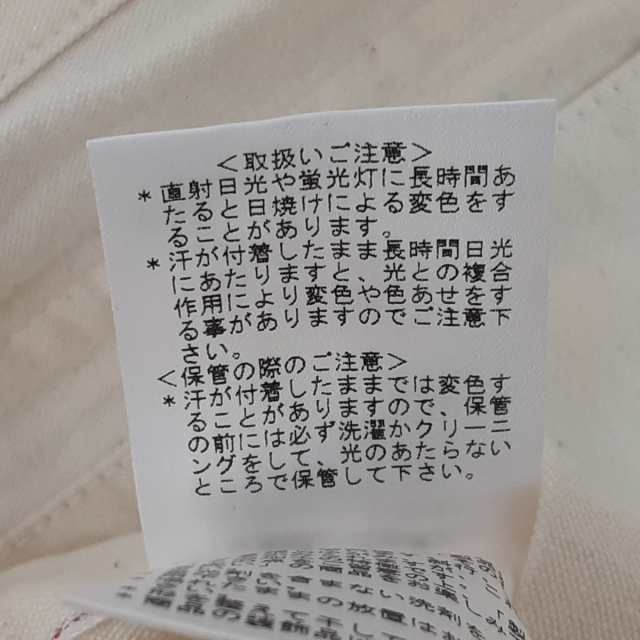 <取扱いご注意>
*直射日光や蛍光灯に長時間あ
たると日焼けによる変色をす
ることがあります。
*汗が付着したまま長時間日光
にあたりますと、光との複合
作用により変色や色あせをす
る事がありますのでご注意下
さい。
<保管の際のご注意>
*汗が付着したままでは変色す
ることがありますので、保管
の前には必ず洗濯かクリーニ
ングをして、光のあたらない
ところで保管して下さい。